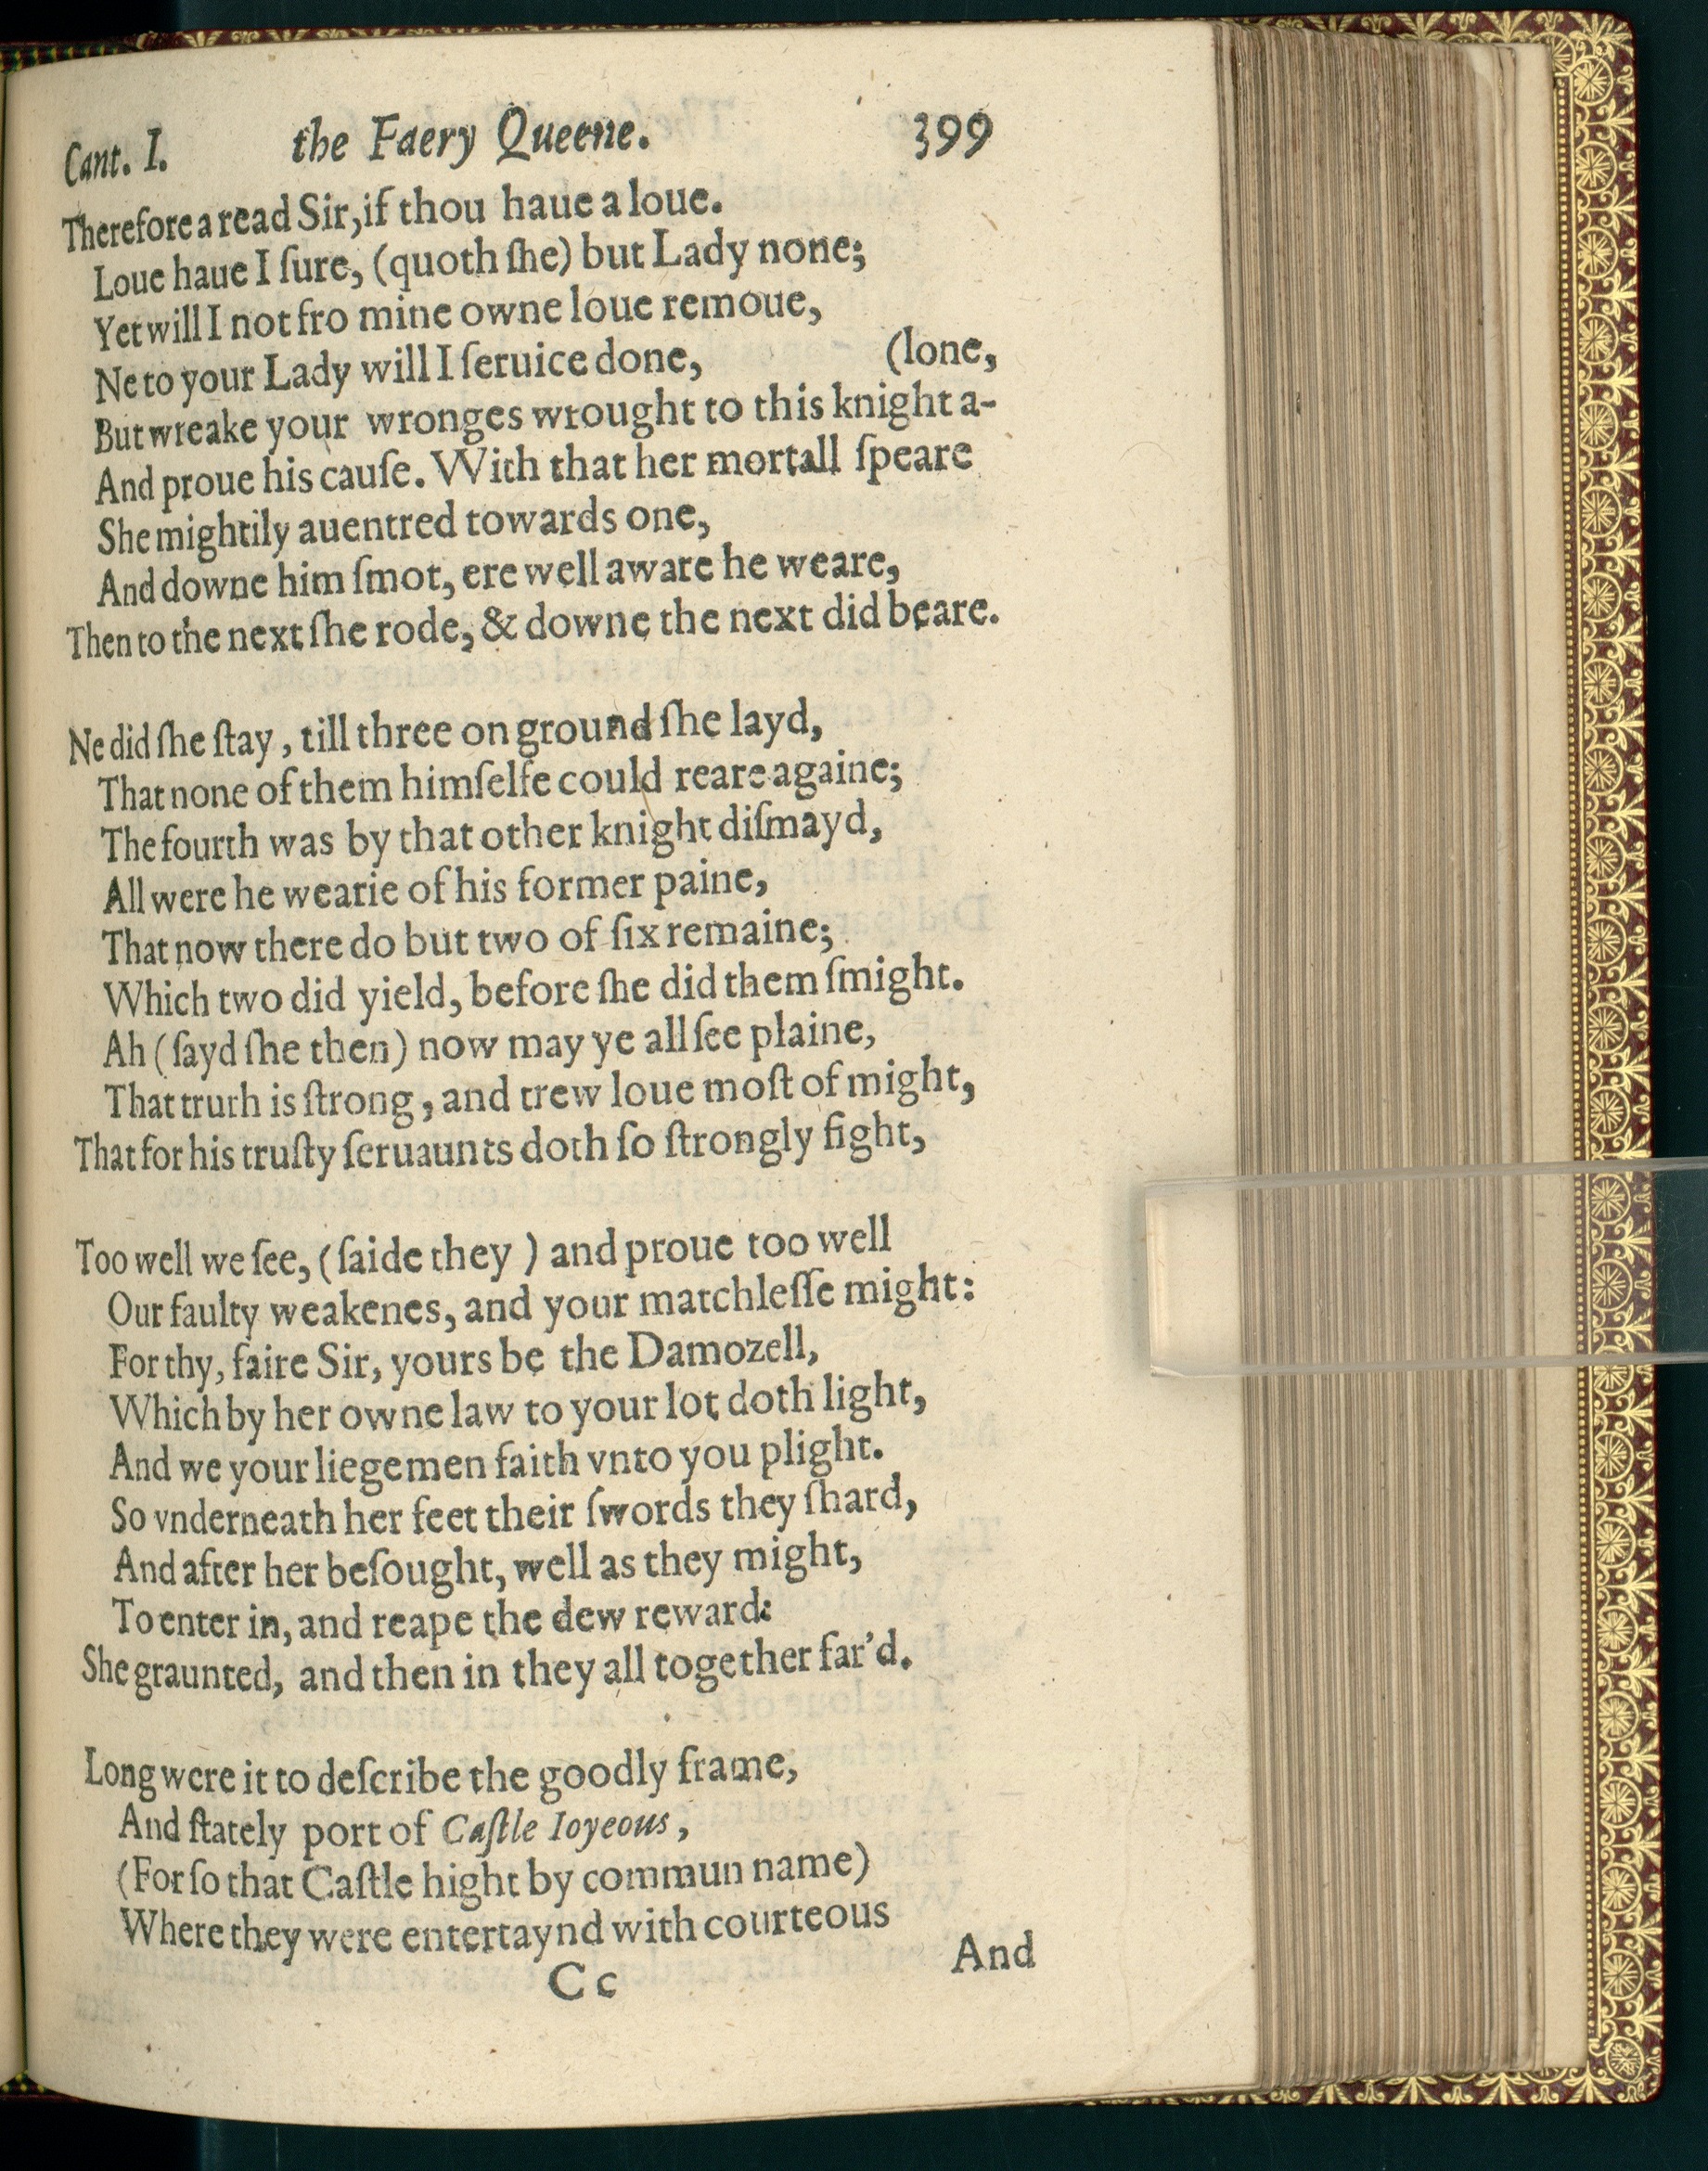 Cant. I. the Faery Queene. 399
Therefore aread Sir, if thou haue a loue.
Loue haue I ſure, (quoth ſhe) but Lady none;
Yet will I not fro mine owne loue remoue,
Ne to your Lady will I ſeruice done, (lone,
But wreake your wronges wrought to this knight a-
And proue his cauſe. With that her mortall ſpeare
She mightily auentred towards one,
And downe him ſmot, ere well aware he weare,
Then to the next ſhe rode, & downe the next did beare.
Ne did ſhe ſtay, till three on ground ſhe layd,
That none of them himſelfe could reare againe;
The fourth was by that other knight diſmayd,
All were he wearie of his former paine,
That now there do but two of ſix remaine;
Which two did yield, before ſhe did them ſmight.
Ah (ſayd ſhe then) now may ye all ſee plaine,
That truth is ſtrong, and trew loue moſt of might,
That for his truſty ſeruaunts doth ſo ſtrongly fight,
Too well we ſee, (ſaide they) and proue too well
Our faulty weakenes, and your matchleſſe might:
For thy, faire Sir, yours be the Damozell,
Which by her owne law to your lot doth light,
And we your liegemen faith vnto you plight.
So vnderneath her feet their ſwords they ſhard,
And after her beſought, well as they might,
To enter in, and reape the dew reward:
She graunted, and then in they all together far'd.
Long were it to deſcribe the goodly frame,
And ſtately port of Caſtle Ioyeous,
(For ſo that Caſtle hight by commun name)
Where they were entertaynd with courteous
Cc And